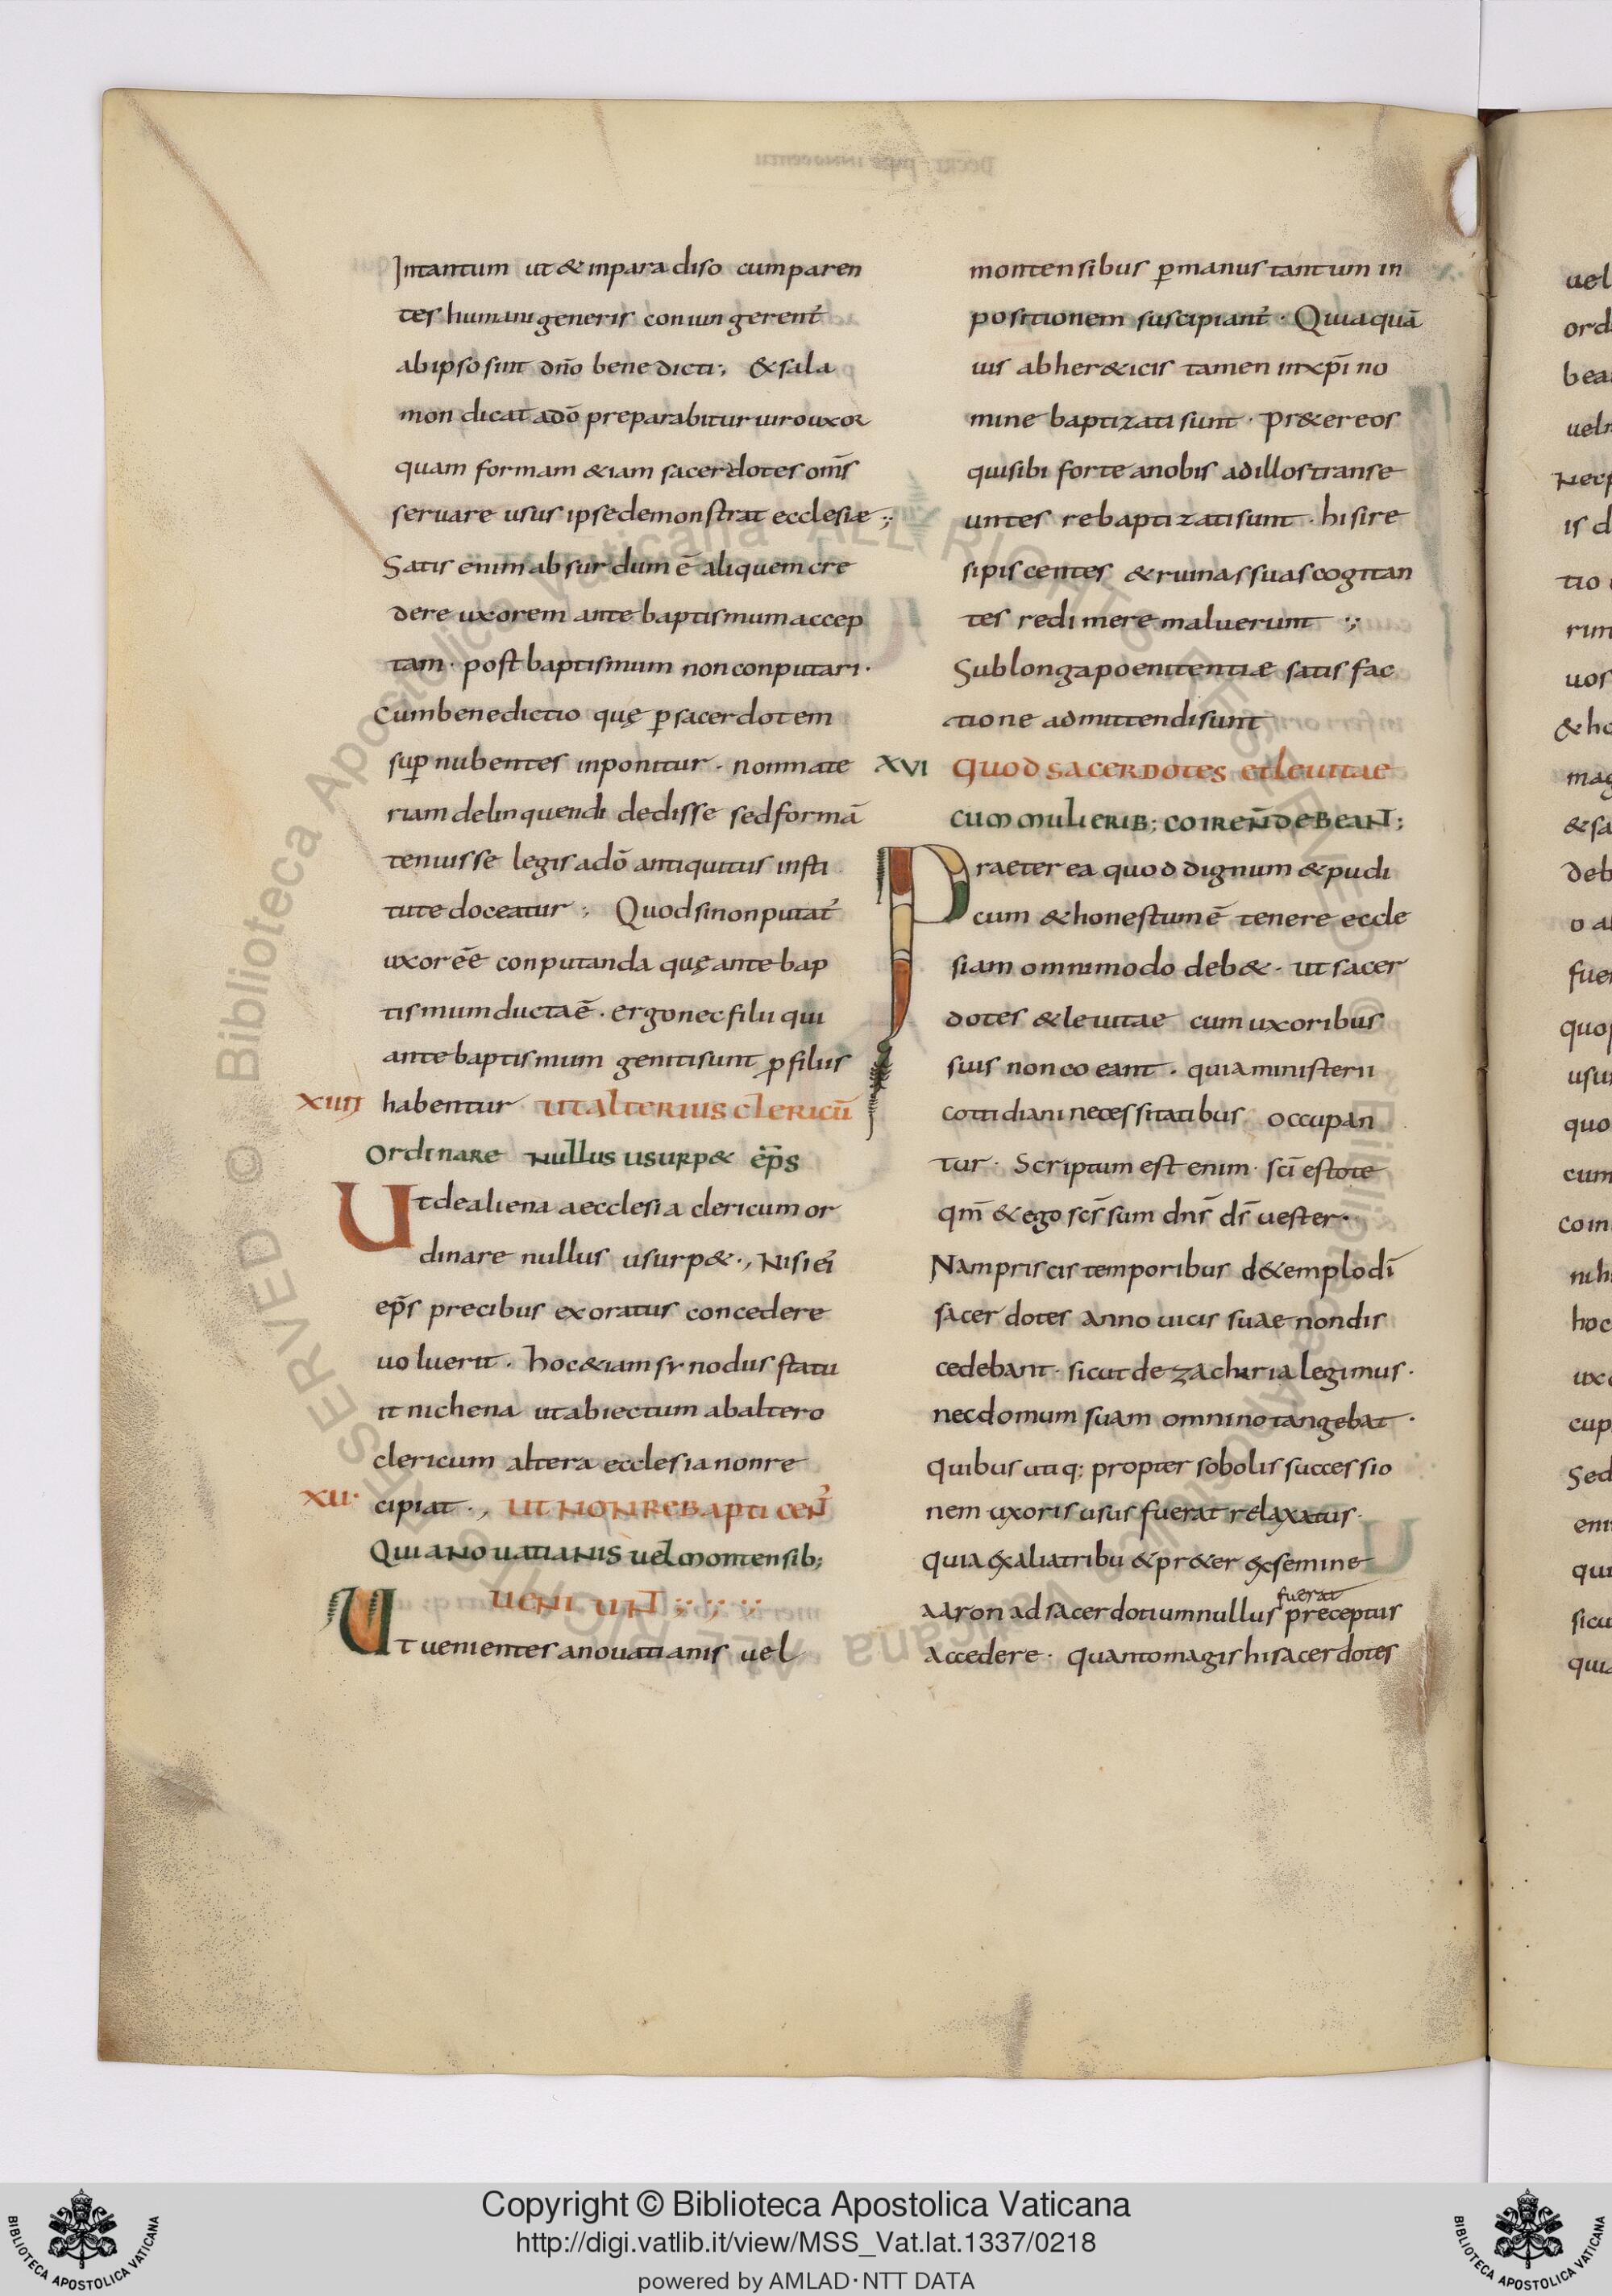 Intantum ut & inparadiso cumparen
tes humani generis coniungerent᷑
abipso sint dn̄o benedicti; & sala
mon dicat adō preparabitur uirouxor
quam formam &iam sacerdotes om̄s
seruare usus ipsedemonstrat ecclesiæ ;
Satis enim absurdum ē aliquem cre
dere uxorem ante baptismum accep
tam · post baptismum non conputari ·
Cumbenedictio quę ꝑsacerdotem
sup̄ nubentes inponitur · nonmate
riam delinquendi dedisse sedformā
tenuisse legis adō antiquitus insti
tute doceatur ; Quodsinonputat᷑
uxorē ē conputanda quęante bap
tismum ducta ē · ergonec filii qui
ante baptismum geniti sunt ꝑ filiis
XIIII habentur UT ALTERIUS CLERICŪ
ORDINARE NULLUS USURP& EP̄S
Ut dealiena aecclesia clericum or
dinare nullus usurp& ·, Nisi ei᷑
ep̄s precibus exoratus concedere
uoluerit · hoc&iam synodus statu
it nichena utabiectum abaltero
clericum altera ecclesia nonre
XU· cipiat ·, UT NON REBAPTICEN᷑
QUI A NOUATIANIS UEL MONTENSIB;
UENIUNT ; ; ;
Ut uenientes anouatianis uel
montensibus ꝑmanus tantum in
positionem suscipiant᷑ · Quiaquā
uis abher&icis tamen inxp̄i no
mine baptizati sunt · Pr&er eos
quisibi forte anobis adillos transe
untes rebaptizati sunt · hi si re
sipiscentes & ruinas suas cogitan
tes redimere maluerunt ;
Sub longa poenitentiæ satisfac
tione admittendi sunt
XVI QUOD SACERDOTES ET LEUITAE
CUM MULIERIB; COIRE N̄ DEBEANT;
Praeter ea quod dignum & pudi
cum & honestum ē tenere eccle
siam omnimodo deb& · ut sacer
dotes & leuitae cum uxoribus
suis non coeant · quia ministerii
cottidiani necessitatibus occupan
tur · Scriptum est enim · sc̄i estote
qm̄ & ego sc̄s sum dn̄s ds̄ uester ·
Nam priscis temporibus de templo dī
sacerdotes anno uicis suae nondis
cedebant · sicut de zacharia legimus ·
necdomum suam omnino tangebat ·
quibus utiq; propter sobolis successio
nem uxoris usus fuerat relaxatus ·
quia exalia tribu & pr&er exsemine
fuerat
aaron ad sacerdotium nullus preceptus
accedere · quantomagis hi sacerdotes
Copyright © Biblioteca Apostolica Vaticana
http://digi.vatlib.it/view/MSS_Vat.lat.1337/0218
powered by AMLAD·NTT DATA
BIBLIOTECA APOSTOLICA VATICANA
BIBLIOTECA APOSTOLICA VATICANA